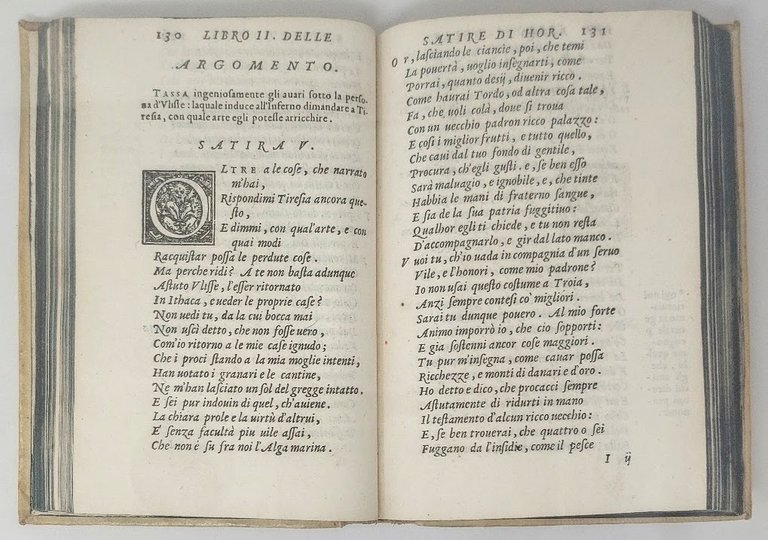 130 LIBRO II. DELLE
ARGOMENTO.
TASSA ingeniosamente gli auari sotto la perso
na d'Vlisse: laquale induce all'Inferno dimandare a Ti
resia, con quale arte egli potesse arricchire.
SATIRA V.
OLTRE a le cose, che narrato
m'hai,
Rispondimi Tiresia ancora que-
sto,
E dimmi, con qual'arte, e con
quai modi
Racquistar possa le perdute cose.
Ma perche ridi? A te non basta adunque
Astuto Vlisse, l'esser ritornato
In Ithaca, e ueder le proprie case?
Non uedi tu, da la cui bocca mai
Non uscì detto, che non fosse uero,
Com'io ritorno a le mie case ignudo;
Che i proci stando a la mia moglie intenti,
Han uotato i granari e le cantine,
Ne m'han lasciato un sol del gregge intatto.
E sei pur indouin di quel, ch'auiene.
La chiara prole e la uirtù d'altrui,
E senza facultà piu uile assai,
Che non è su fra noi l'Alga marina.
SATIRE DI HOR. 131
Or, lasciando le ciancie, poi, che temi
La pouertà, uoglio insegnarti, come
Porrai, quanto desij, diuenir ricco.
Come haurai Tordo, od altra cosa tale,
Fa, che uoli colà, doue si troua
Con un uecchio padron ricco palazzo:
E cosi i miglior frutti, e tutto quello,
Che caui dal tuo fondo di gentile,
Procura, ch'egli gusti. e, se ben esso
Sarà maluagio, e ignobile, e, che tinte
Habbia le mani di fraterno sangue,
E sia de la sua patria fuggitiuo:
Qualhor egli ti chiede, e tu non resta
D'accompagnarlo, e gir dal lato manco.
Vuoi tu, ch'io uada in compagnia d'un seruo
Vile, e l'honori, come mio padrone?
Io non usai questo costume a Troia,
Anzi sempre contesi co' migliori.
Sarai tu dunque pouero. Al mio forte
Animo imporrò io, che cio sopporti:
E gia sostenni ancor cose maggiori.
Tu pur m'insegna, come cauar possa
Ricchezze, e monti di danari e d'oro.
Ho detto e dico, che procacci sempre
Astutamente di ridurti in mano
Il testamento d'alcun ricco uecchio:
E, se ben trouerai, che quattro o sei
Fuggano da l'insidie, come il pesce
I ij